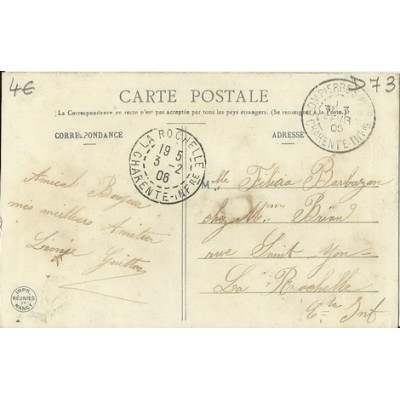 4€
D73
CARTE POSTALE
La Correspondance au recto n'est pas acceptée par tous les pays étrangers. (Se renseigner à la Poste.)
CORRESPONDANCE
ADRESSE
LA ROCHELLE
19 5
3 -2
06
CHARENTE-INFRE
CHARENTE-INFRE
Amical Bonjour
mes meilleures Amitiés
Guitton
Melle Félicia Barbazan
chez Mme Briand
rue Saint Yon
La Rochelle
Cte Inf
IMPR.
RÉUNIES
DE
NANCY